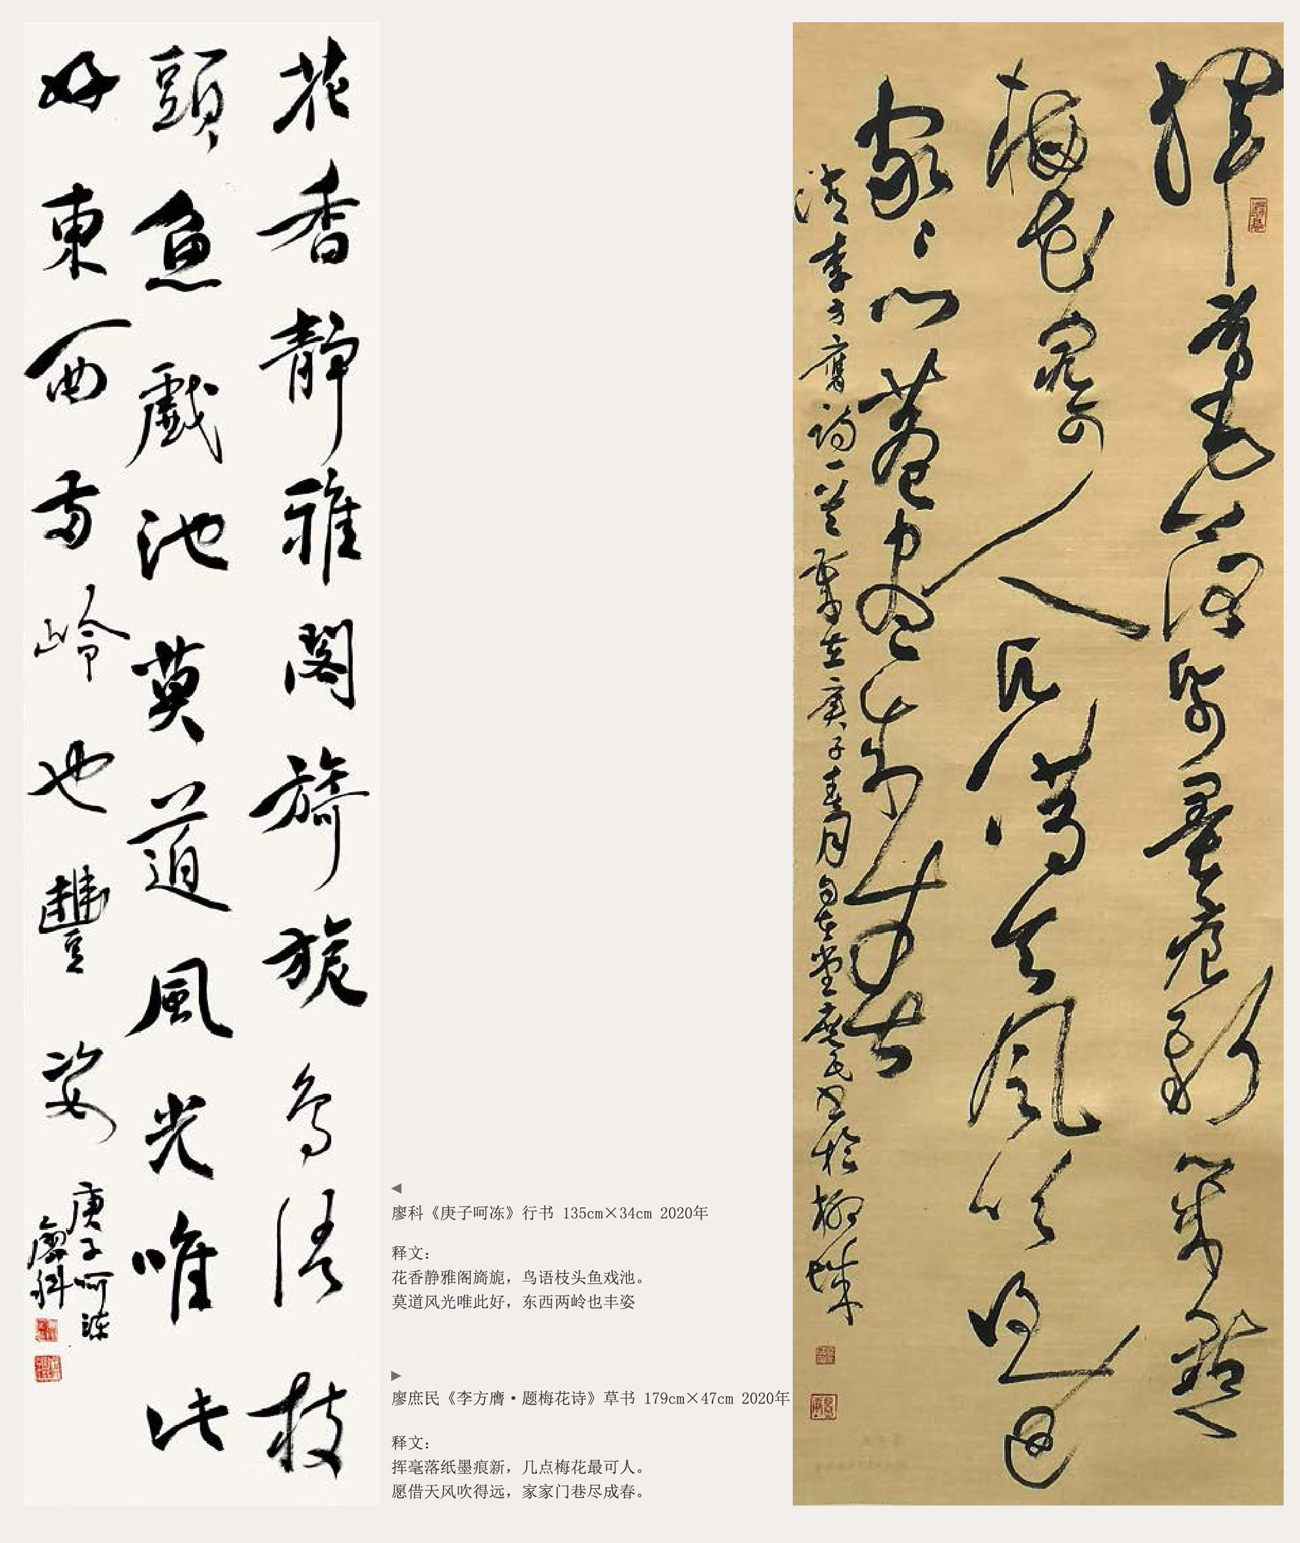 花香靜雅閣旖旎鳥語枝
頭魚戲池莫道風光唯此
好東西两岭也豐姿
庚子呵凍
廖科
◀
廖科《庚子呵冻》行书 135cm×34cm 2020年
释文：
花香静雅阁旖旎，鸟语枝头鱼戏池。
莫道风光唯此好，东西两岭也丰姿
▶
廖庶民《李方膺·题梅花诗》草书 179cm×47cm 2020年
释文：
挥毫落纸墨痕新，几点梅花最可人。
愿借天风吹得远，家家门巷尽成春。
揮毫落紙墨痕新幾點
梅花最可人願借天風吹得遠
家々门巷盡成春
清李方膺詩一首歲在庚子春月自在堂庶民书於柳城